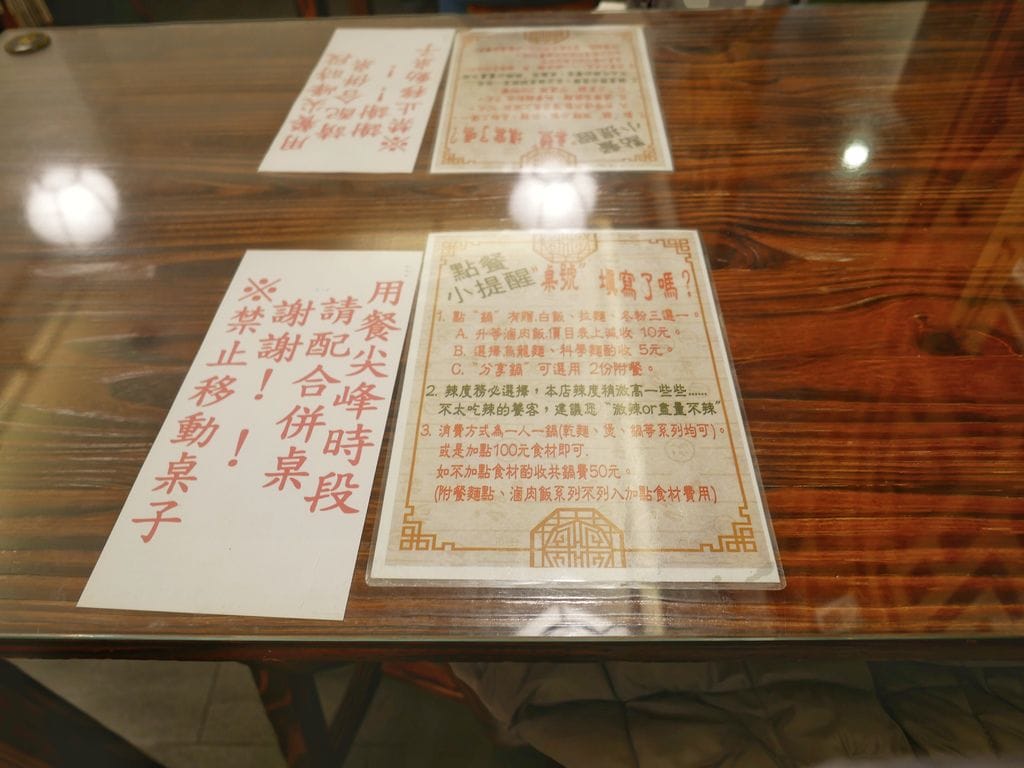 用餐尖峰時段
請配合併桌
謝謝！
※禁止移動桌子！
點餐
小提醒
"桌號" 填寫了嗎？
1. 點 "鍋" 有贈.白飯、拉麵、冬粉三選一。
A. 升等滷肉飯,價目表上減收 10元。
B. 選擇烏龍麵、科學麵酌收 5元。
C. "分享鍋" 可選用 2份附餐。
2. 辣度務必選擇，本店辣度稍微高一些些......
不太吃辣的饕客，建議您 "微辣or盡量不辣"
3. 消費方式為一人一鍋(乾麵、煲、鍋等系列均可)。
或是加點100元食材即可.
如不加點食材酌收共鍋費50元。
(附餐麵點、滷肉飯系列不列入加點食材費用)
用餐尖峰時段
請配合併桌
謝謝！
※禁止移動桌子！
點餐
小提醒
"桌號" 填寫了嗎？